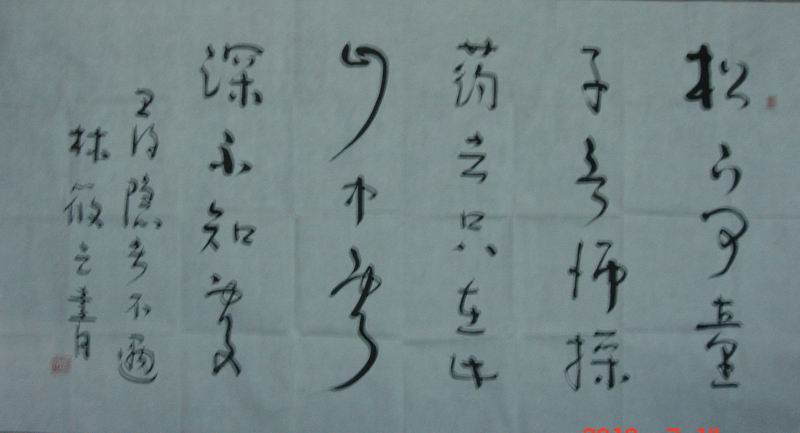 松下问童
子言师採
药去只在此
山中云
深不知处
隐者不遇
林筱之